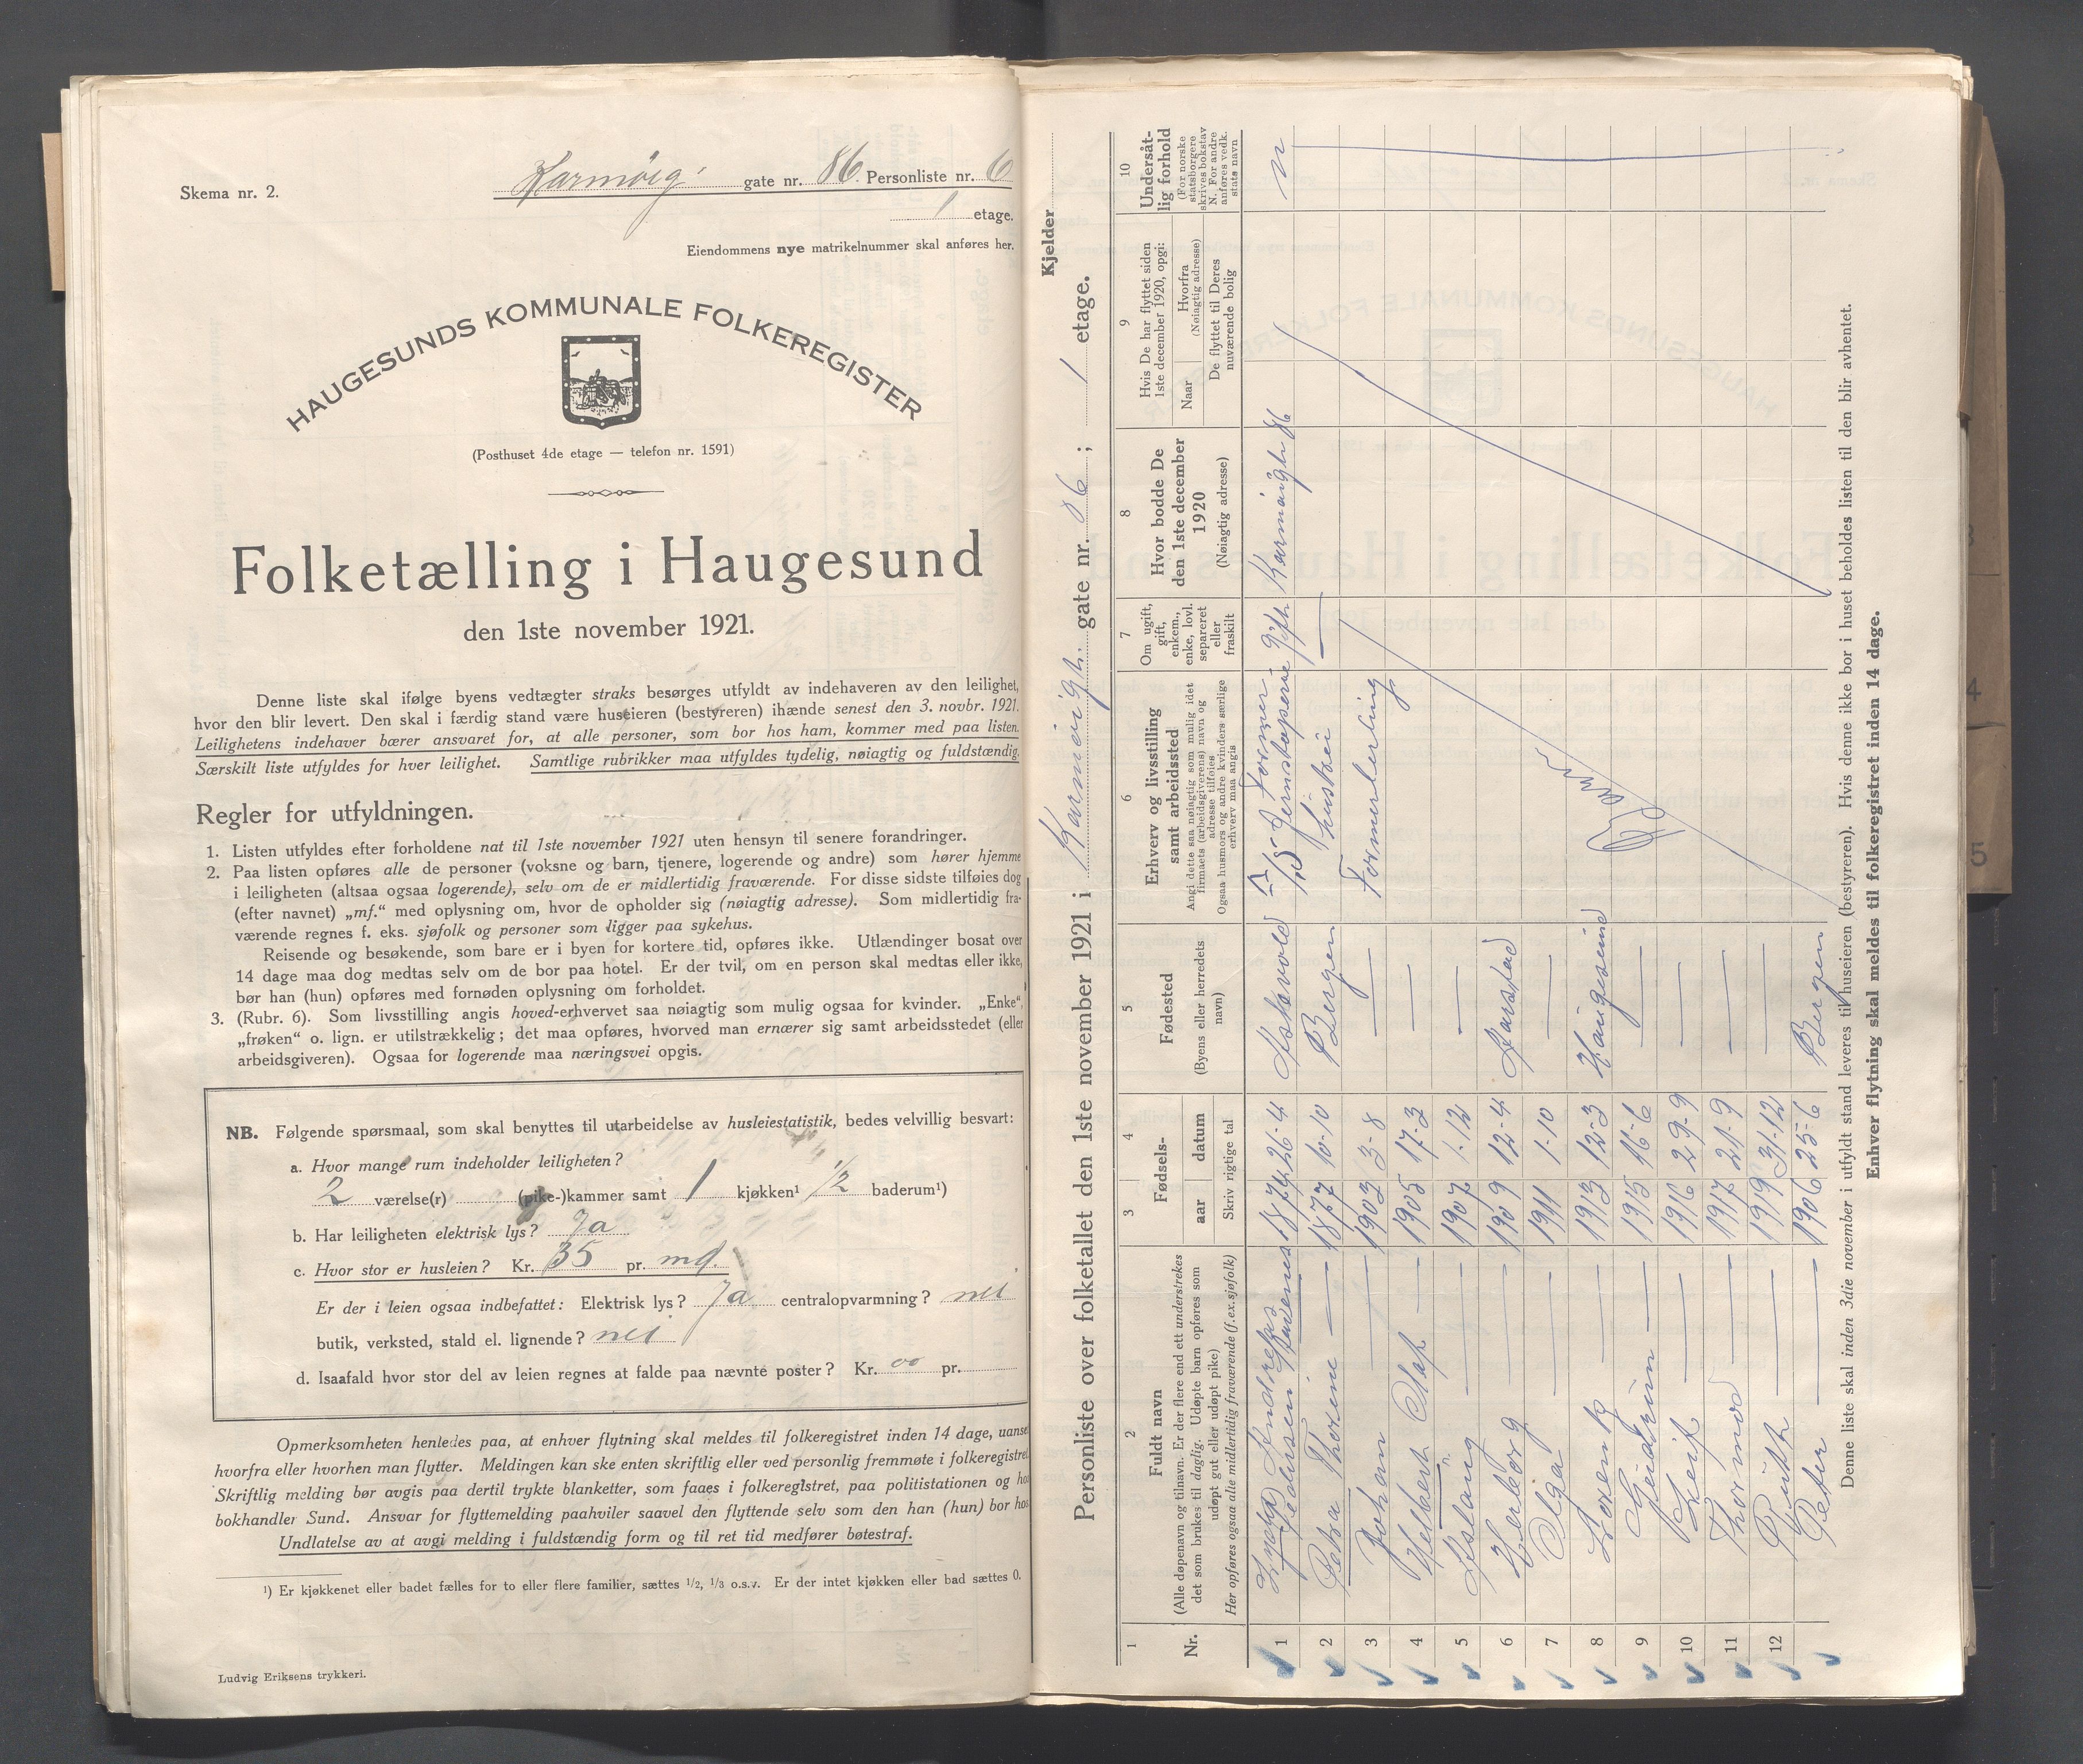 Skema nr. 2.
Karmøig. gate nr. 86. Personliste nr. 6
1 etage.
Eiendommens nye matrikelnummer skal anføres her.
HAUGESUNDS KOMMUNALE FOLKEREGISTER
(Posthuset 4de etage — telefon nr. 1591)
Folketælling i Haugesund
den 1ste november 1921.
Denne liste skal ifølge byens vedtægter straks besørges utfyldt av indehaveren av den leilighet,
hvor den blir levert. Den skal i færdig stand være huseieren (bestyreren) ihænde senest den 3. novbr. 1921.
Leilighetens indehaver bærer ansvaret for, at alle personer, som bor hos ham, kommer med paa listen.
Særskilt liste utfyldes for hver leilighet. Samtlige rubrikker maa utfyldes tydelig, nøiagtig og fuldstændig.
Regler for utfyldningen.
1. Listen utfyldes efter forholdene nat til 1ste november 1921 uten hensyn til senere forandringer.
2. Paa listen opføres alle de personer (voksne og barn, tjenere, logerende og andre) som hører hjemme
i leiligheten (altsaa ogsaa logerende), selv om de er midlertidig fraværende. For disse sidste tilføies dog
(efter navnet) „mf.“ med oplysning om, hvor de opholder sig (nøiagtig adresse). Som midlertidig fra-
værende regnes f. eks. sjøfolk og personer som ligger paa sykehus.
Reisende og besøkende, som bare er i byen for kortere tid, opføres ikke. Utlændinger bosat over
14 dage maa dog medtas selv om de bor paa hotel. Er der tvil, om en person skal medtas eller ikke,
bør han (hun) opføres med fornøden oplysning om forholdet.
3. (Rubr. 6). Som livsstilling angis hoved-erhvervet saa nøiagtig som mulig ogsaa for kvinder. „Enke“,
„frøken“ o. lign. er utilstrækkelig; det maa opføres, hvorved man ernærer sig samt arbeidsstedet (eller
arbeidsgiveren). Ogsaa for logerende maa næringsvei opgis.
NB. Følgende spørsmaal, som skal benyttes til utarbeidelse av husleiestatistik, bedes velvillig besvart:
a. Hvor mange rum indeholder leiligheten?
2 værelse(r) (pike-)kammer samt 1 kjøkken¹ 1/2 baderum¹)
b. Har leiligheten elektrisk lys? Ja
c. Hvor stor er husleien? Kr. 35 pr. md.
Er der i leien ogsaa indbefattet: Elektrisk lys? Ja centralopvarmning? nei
butik, verksted, stald el. lignende? nei
d. Isaafald hvor stor del av leien regnes at falde paa nævnte poster? Kr. 00 pr.
Opmerksomheten henledes paa, at enhver flytning skal meldes til folkeregistret inden 14 dage, uanset
hvorfra eller hvorhen man flytter. Meldingen kan ske enten skriftlig eller ved personlig fremmøte i folkeregistret.
Skriftlig melding bør avgis paa dertil trykte blanketter, som faaes i folkeregistret, paa politistationen og hos
bokhandler Sund. Ansvar for flyttemelding paahviler saavel den flyttende selv som den han (hun) bor hos.
Undlatelse av at avgi melding i fuldstændig form og til ret tid medfører bøtestraf.
¹) Er kjøkkenet eller badet fælles for to eller flere familier, sættes 1/2, 1/3 o.s.v. Er der intet kjøkken eller bad sættes 0.
Ludvig Eriksens trykkeri.
Kjelder
Personliste over folketallet den 1ste november 1921 i Karmøigt. gate nr. 86; 1 etage.
1 2 3 4 5 6 7 8 9 10
Nr.
Fuldt navn
(Alle døpenavn og tilnavn. Er der flere end ett understrekes
det som brukes til daglig. Udøpte barn opføres som
udøpt gut eller udøpt pike)
Her opføres ogsaa alle midlertidig fraværende (f.ex. sjøfolk)
Fødsels-
aar datum
Skriv rigtige tal
Fødested
(Byens eller herredets
navn)
Erhverv og livsstilling
samt arbeidssted
Angi dette saa nøiagtig som mulig idet
firmaets (arbeidsgiverens) navn og
adresse tilføies
Ogsaa husmors og andre kvinders særlige
erhverv maa angis
Om ugift,
gift,
enkem.,
enke, lovl.
separeret
eller
fraskilt
Hvor bodde De
den 1ste december
1920
(Nøiagtig adresse)
Hvis De har flyttet siden
1ste december 1920, opgi:
Naar
Hvorfra
(Nøiagtig adresse)
De flyttet til Deres
nuværende bolig
Undersåt-
lig forhold
(For norske
statsborgere
skrives bokstav
N. For andre
anføres vedk.
stats navn
1 Andreas Stavenes 1874 26-4 Askevold Former Jernstøperie Gift Karmøigt 86 N
2 Petra Thorene — 1877 10-10 Bergen husstei —
3 Johan — 1903 3-8 — Formerlerling
4 Olaf — 1905 17-3 —
5 Aslaug — 1907 1-12 —
6 Herborg — 1909 12-4 Aarstad
7 Olga — 1911 1-10 —
8 Lorentz — 1913 12-3 Haugesund
9 Gudrun — 1915 16-6 —
10 Leif — 1916 29-9 —
11 Thormod — 1917 21-9 —
12 Ruth — 1919 31-12 —
Peter — 1906 25-6 Bergen
Denne liste skal inden 3die november i utfyldt stand leveres til huseieren (bestyreren). Hvis denne ikke bor i huset beholdes listen til den blir avhentet.
Enhver flytning skal meldes til folkeregistret inden 14 dage.